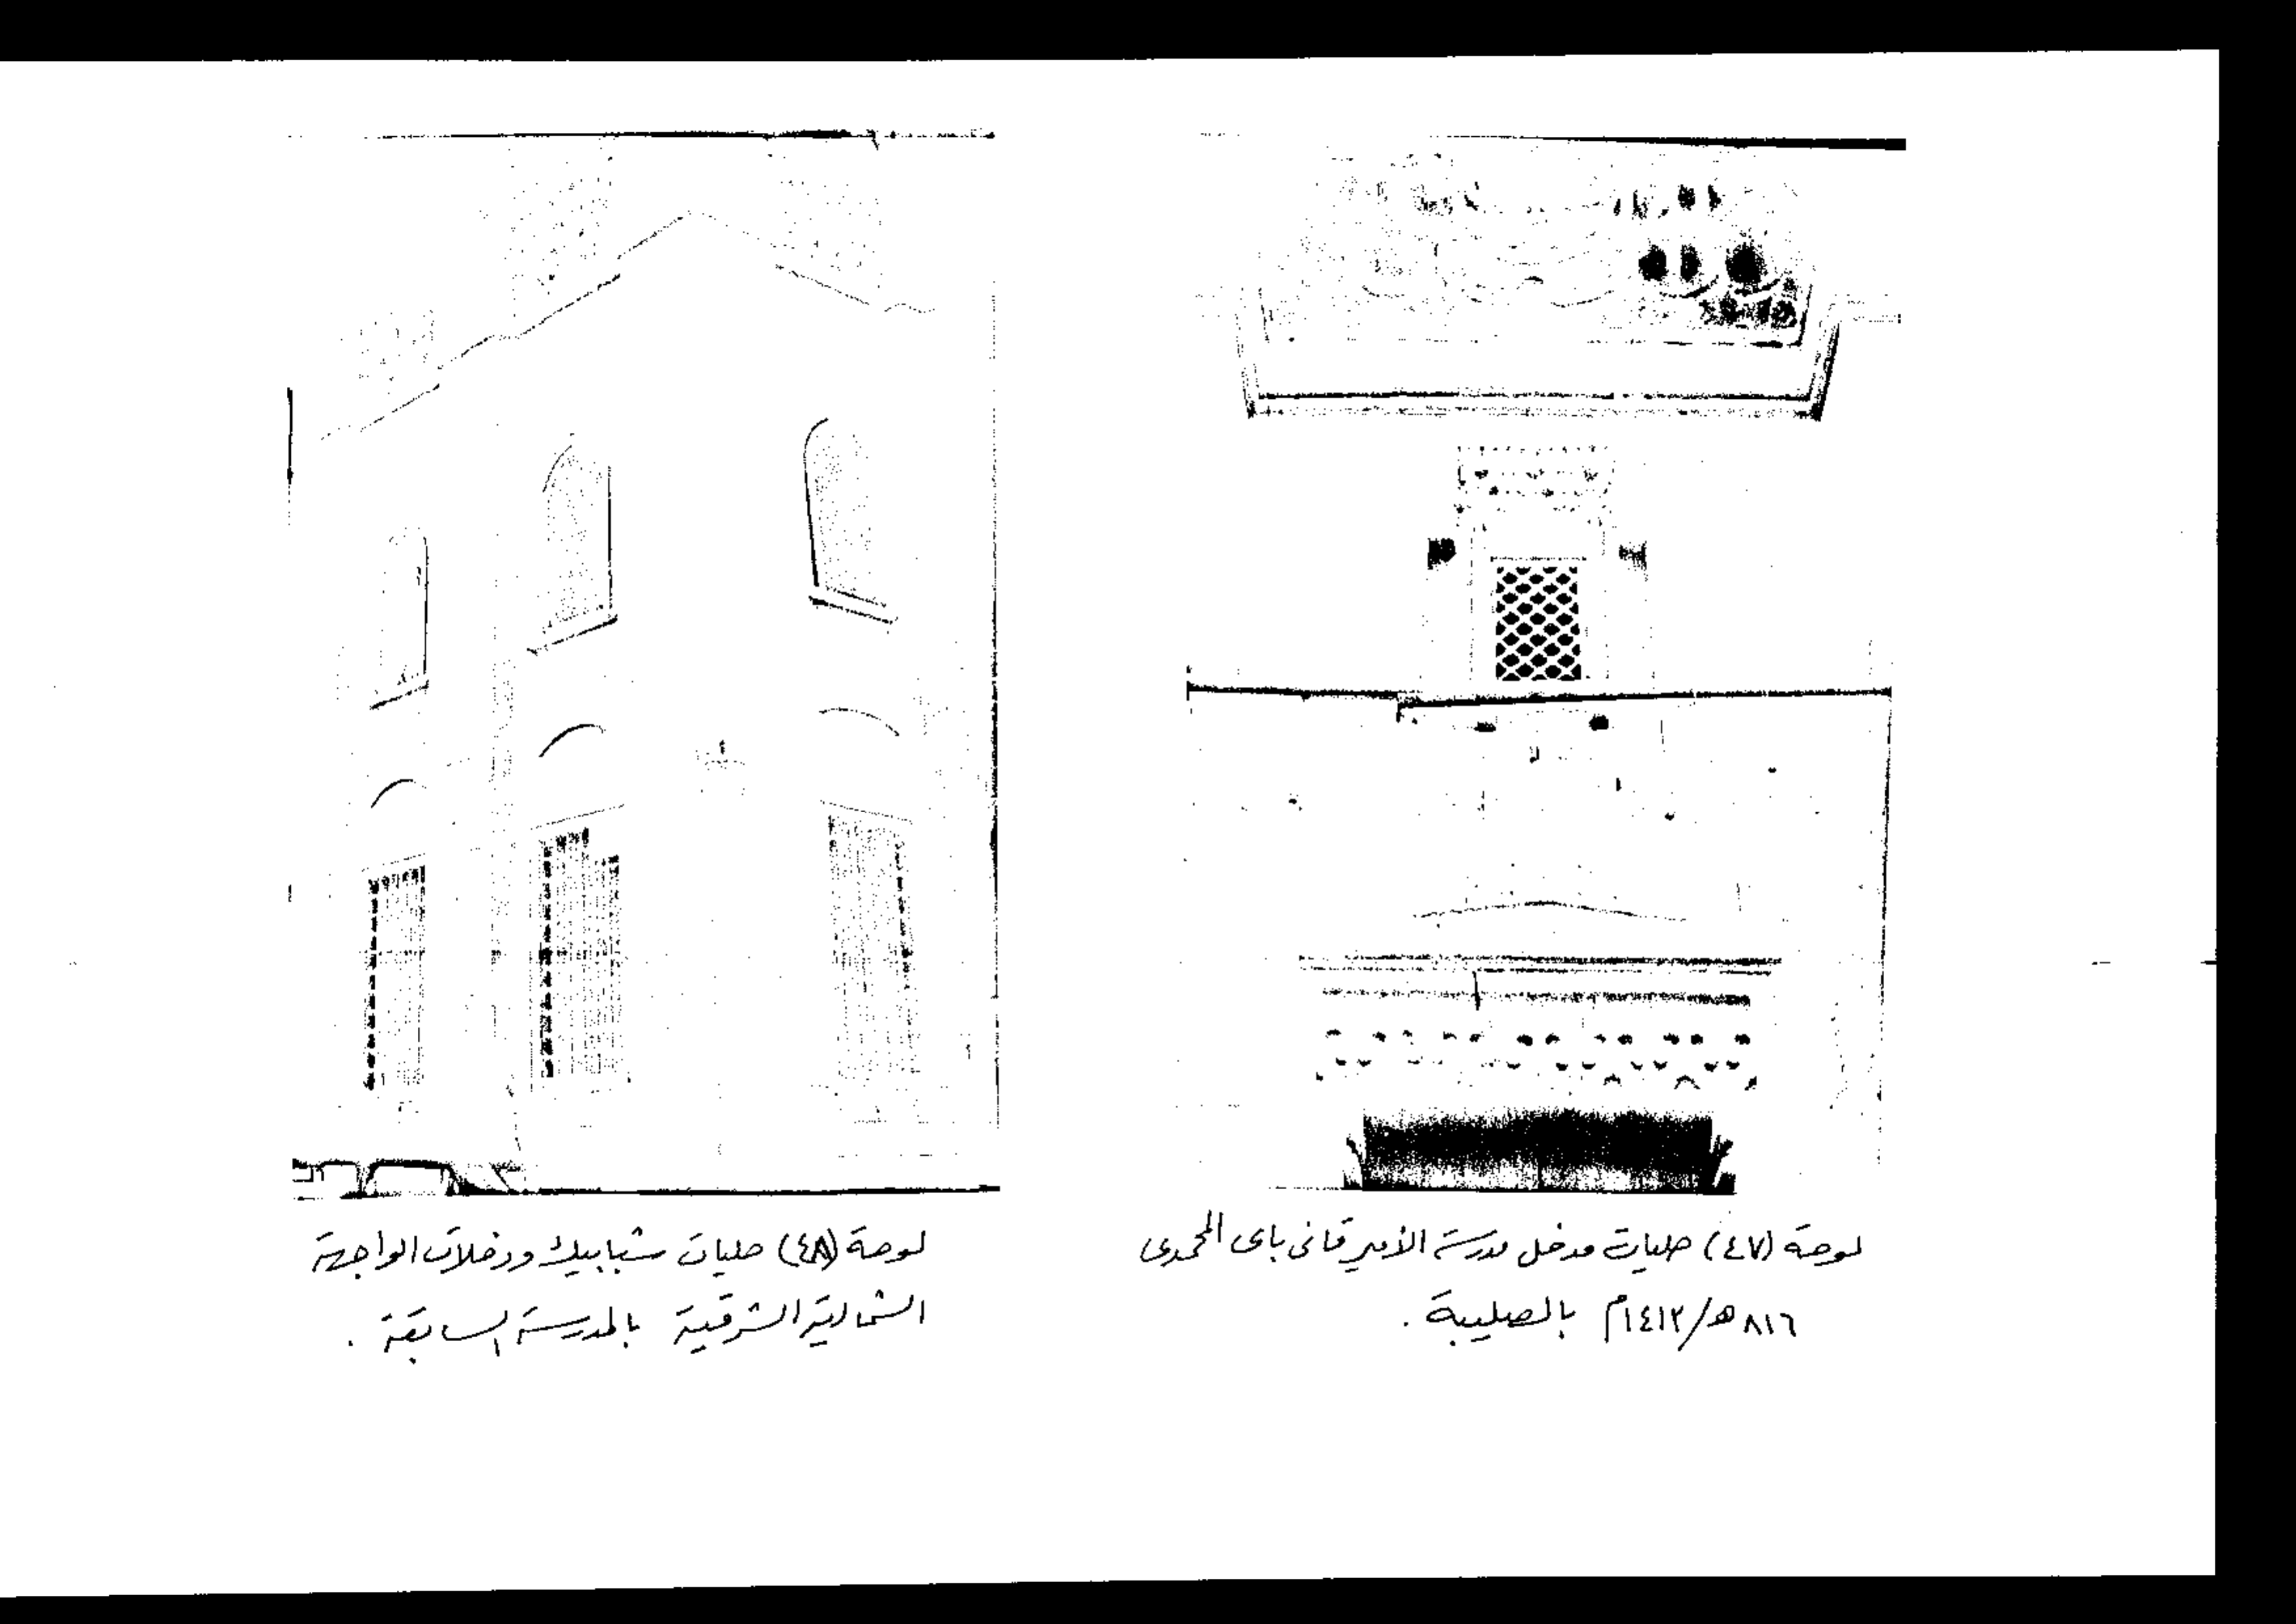 لوحة (٤٧) حليات مدخل مدرسة الأمير قانى باى المحمدى
٨١٦هـ/١٤١٣م بالصليبة .
لوحة (٤٨) حليات شبابيك ودخلات الواجهة
الشمالية الشرقية بالمدرسة السابقة .